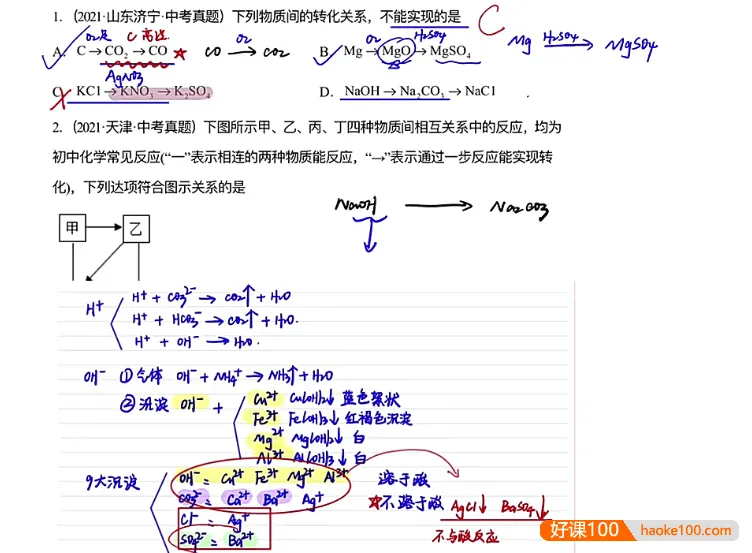 1.（2021·山东济宁·中考真题）下列物质间的转化关系，不能实现的是 C
O₂点 C高温
A. C→CO₂→CO ★ CO O₂→ CO₂ B. Mg O₂→ MgO H₂SO₄→ MgSO₄ Mg H₂SO₄→ MgSO₄
AgNO₃
C. KCl→KNO₃→K₂SO₄ D. NaOH→Na₂CO₃→NaCl
2.（2021·天津·中考真题）下图所示甲、乙、丙、丁四种物质间相互关系中的反应，均为
初中化学常见反应(“一”表示相连的两种物质能反应，“→”表示通过一步反应能实现转
化)，下列达项符合图示关系的是
NaOH → Na₂CO₃
甲 → 乙
H⁺ + CO₃²⁻ → CO₂↑ + H₂O
H⁺
H⁺ + HCO₃⁻ → CO₂↑ + H₂O.
H⁺ + OH⁻ → H₂O.
OH⁻ ①气体 OH⁻ + NH₄⁺ → NH₃↑ + H₂O
②沉淀 OH⁻ + Cu²⁺ Cu(OH)₂↓ 蓝色絮状
Fe³⁺ Fe(OH)₃↓ 红褐色沉淀
Mg²⁺ Mg(OH)₂↓ 白
Al³⁺ Al(OH)₃↓ 白
9大沉淀 OH⁻ = Cu²⁺ Fe³⁺ Mg²⁺ Al³⁺ 溶于酸
CO₃²⁻ = Ca²⁺ Ba²⁺ Ag⁺ ★不溶于酸 AgCl↓ BaSO₄↓
Cl⁻ = Ag⁺ 不与酸反应
SO₄²⁻ = Ba²⁺
好课100 haoke100.com